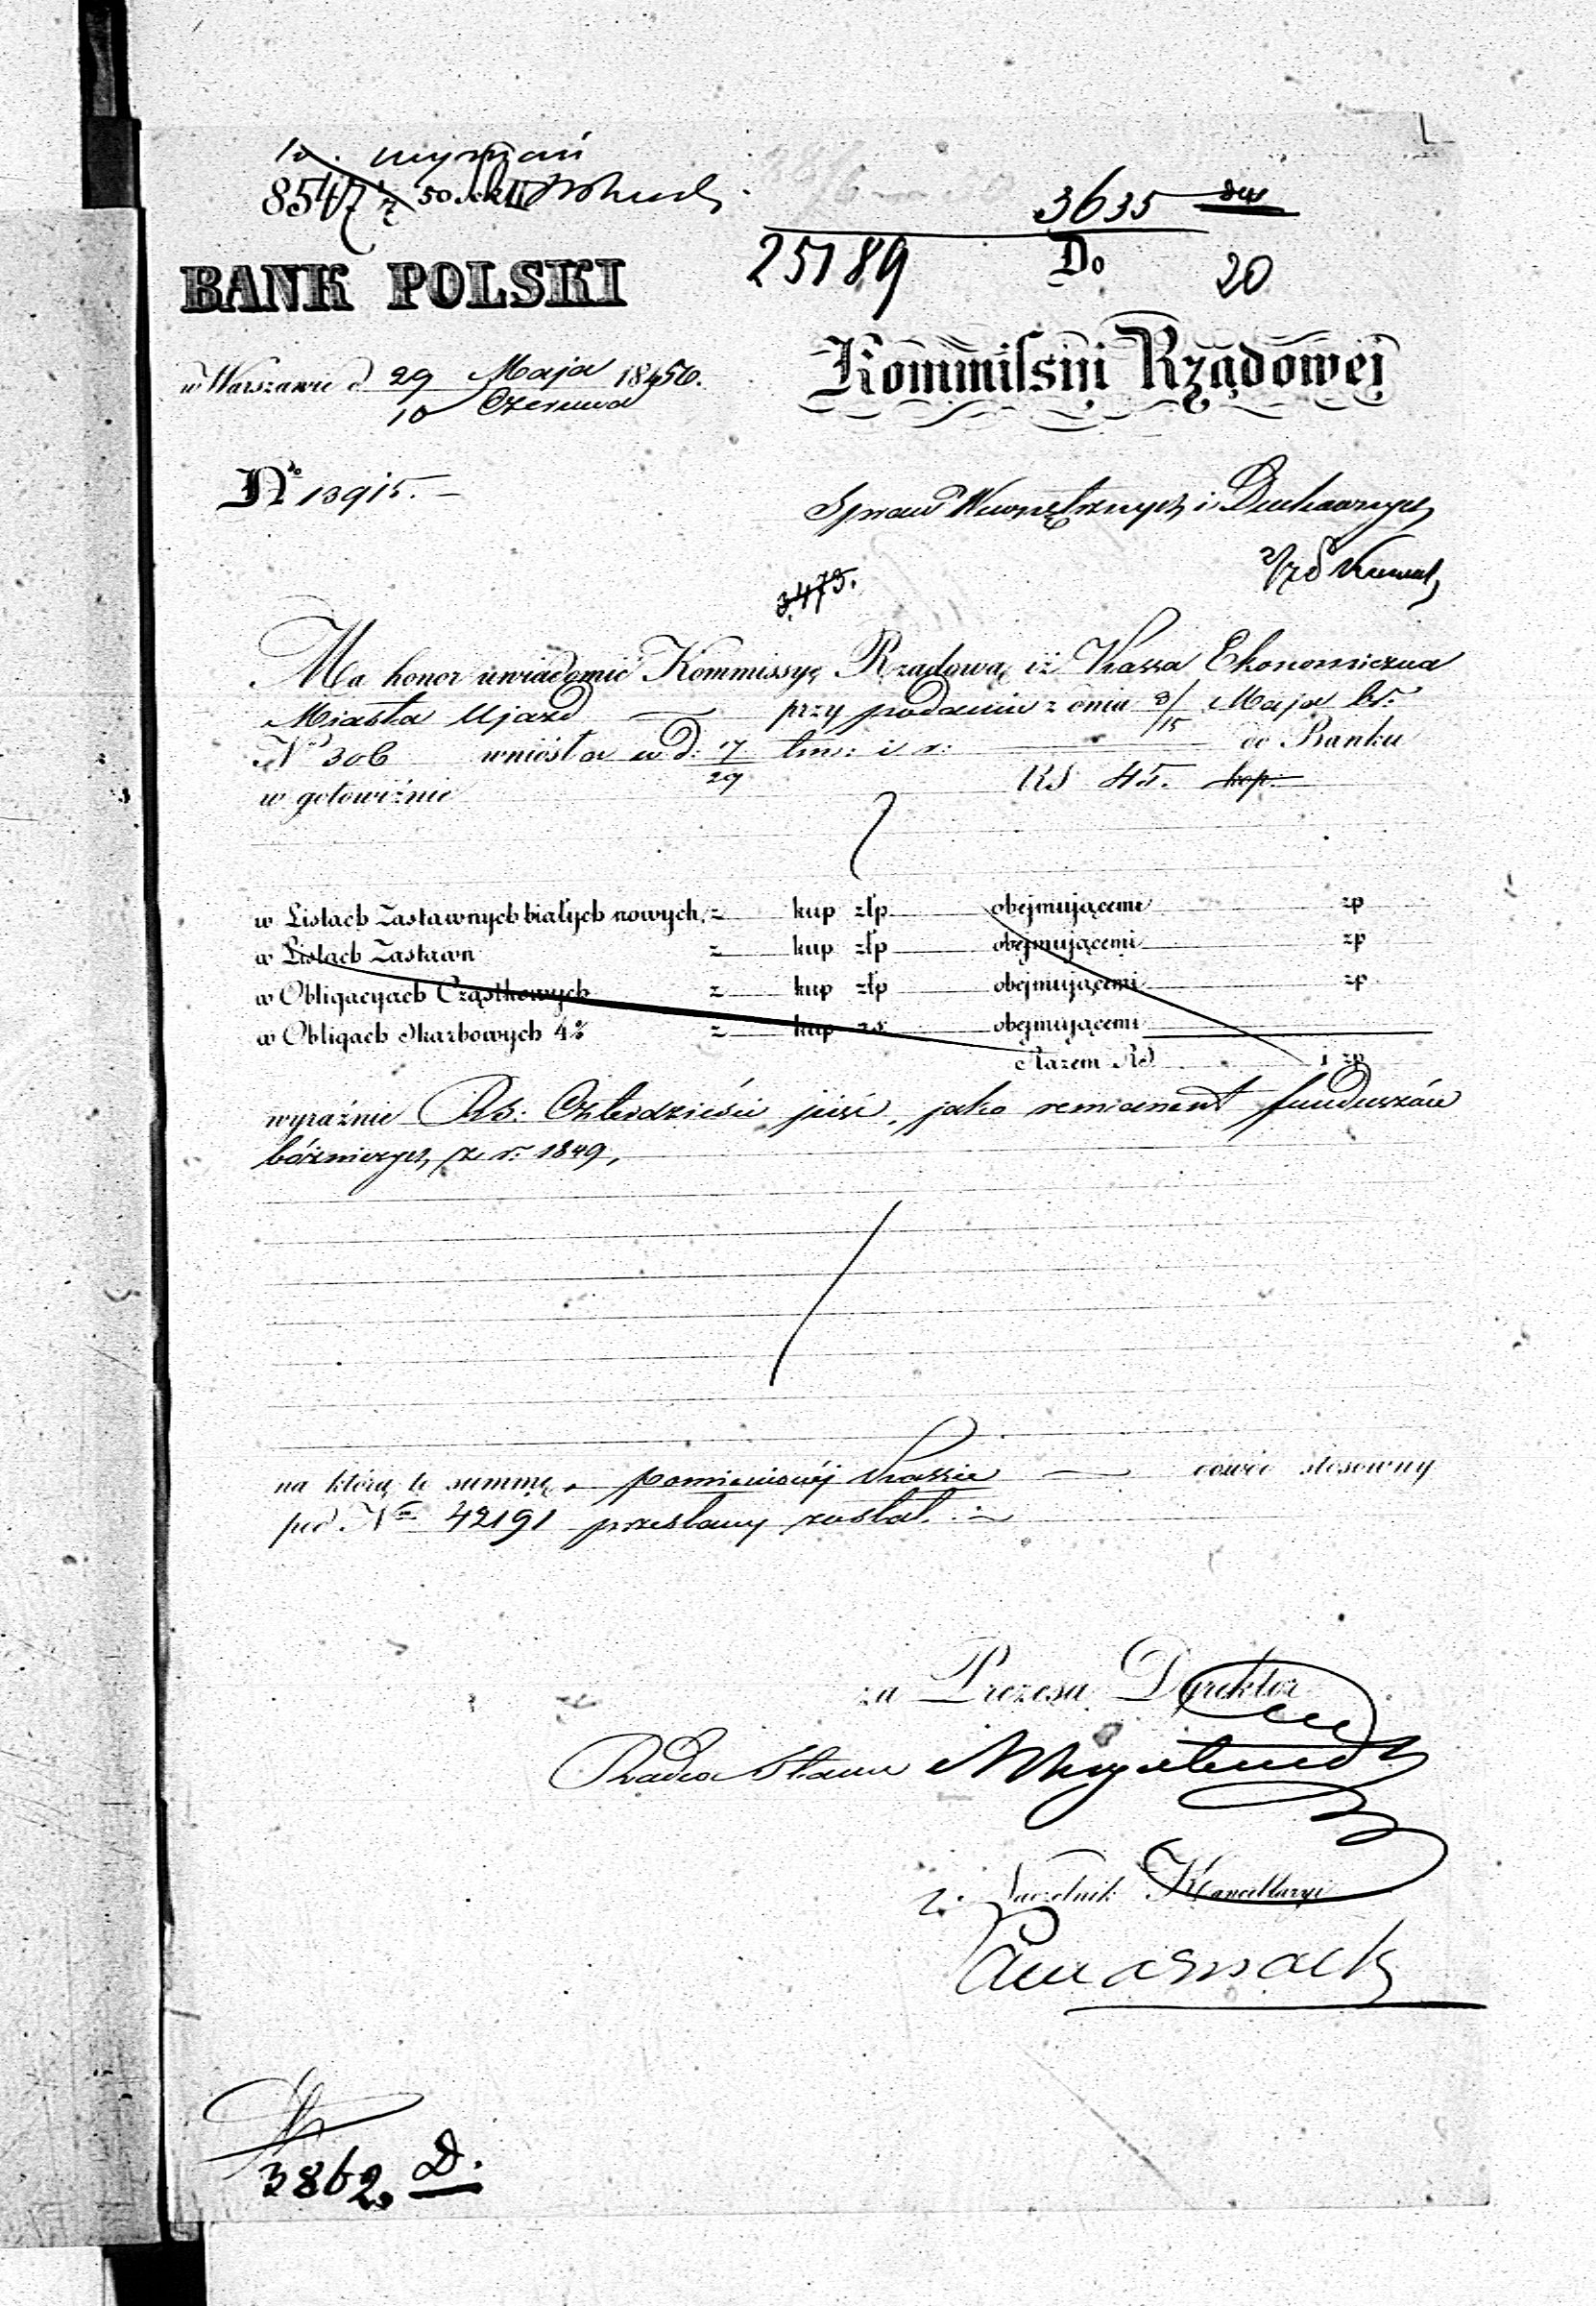 3635
25189
Do
20
BANK POLSKI
w Warszawie d 29 Maja 1850.
10 Czerwca
Kommissyi Rządowej
No 13915.
Spraw Wewnętrznych i Duchownych
3475.
Ma honor uwiadomić Kommissyę Rządową iż Kassa Ekonomiczna
Miasta Ujazd przy podaniu z dnia 3/15 Maja b.r.
No 306 wniosła w d: 17/29 t.m: i r: do Banku
w gotowiźnie RS 45. kop:
w Listach Zastawnych białych nowych z kup złp obejmującemi zp
w Listach Zastawn z kup złp obejmującemi zp
w Obligacyach Cząstkowych z kup złp obejmującemi zp
w Obligach Skarbowych 4% z kup rs obejmującemi
Razem RS i zp
wyraźnie Rs: Czterdzieści pięć, jako remanent funduszów
bóżniczych z r. 1849,
na którą to summę, pomienionéj Kassie dowód stosowny
pod No 42191 przesłany został.
za Prezesa Dyrektor
Radca Stanu
z. Naczelnik Kancellaryi
3862. D.